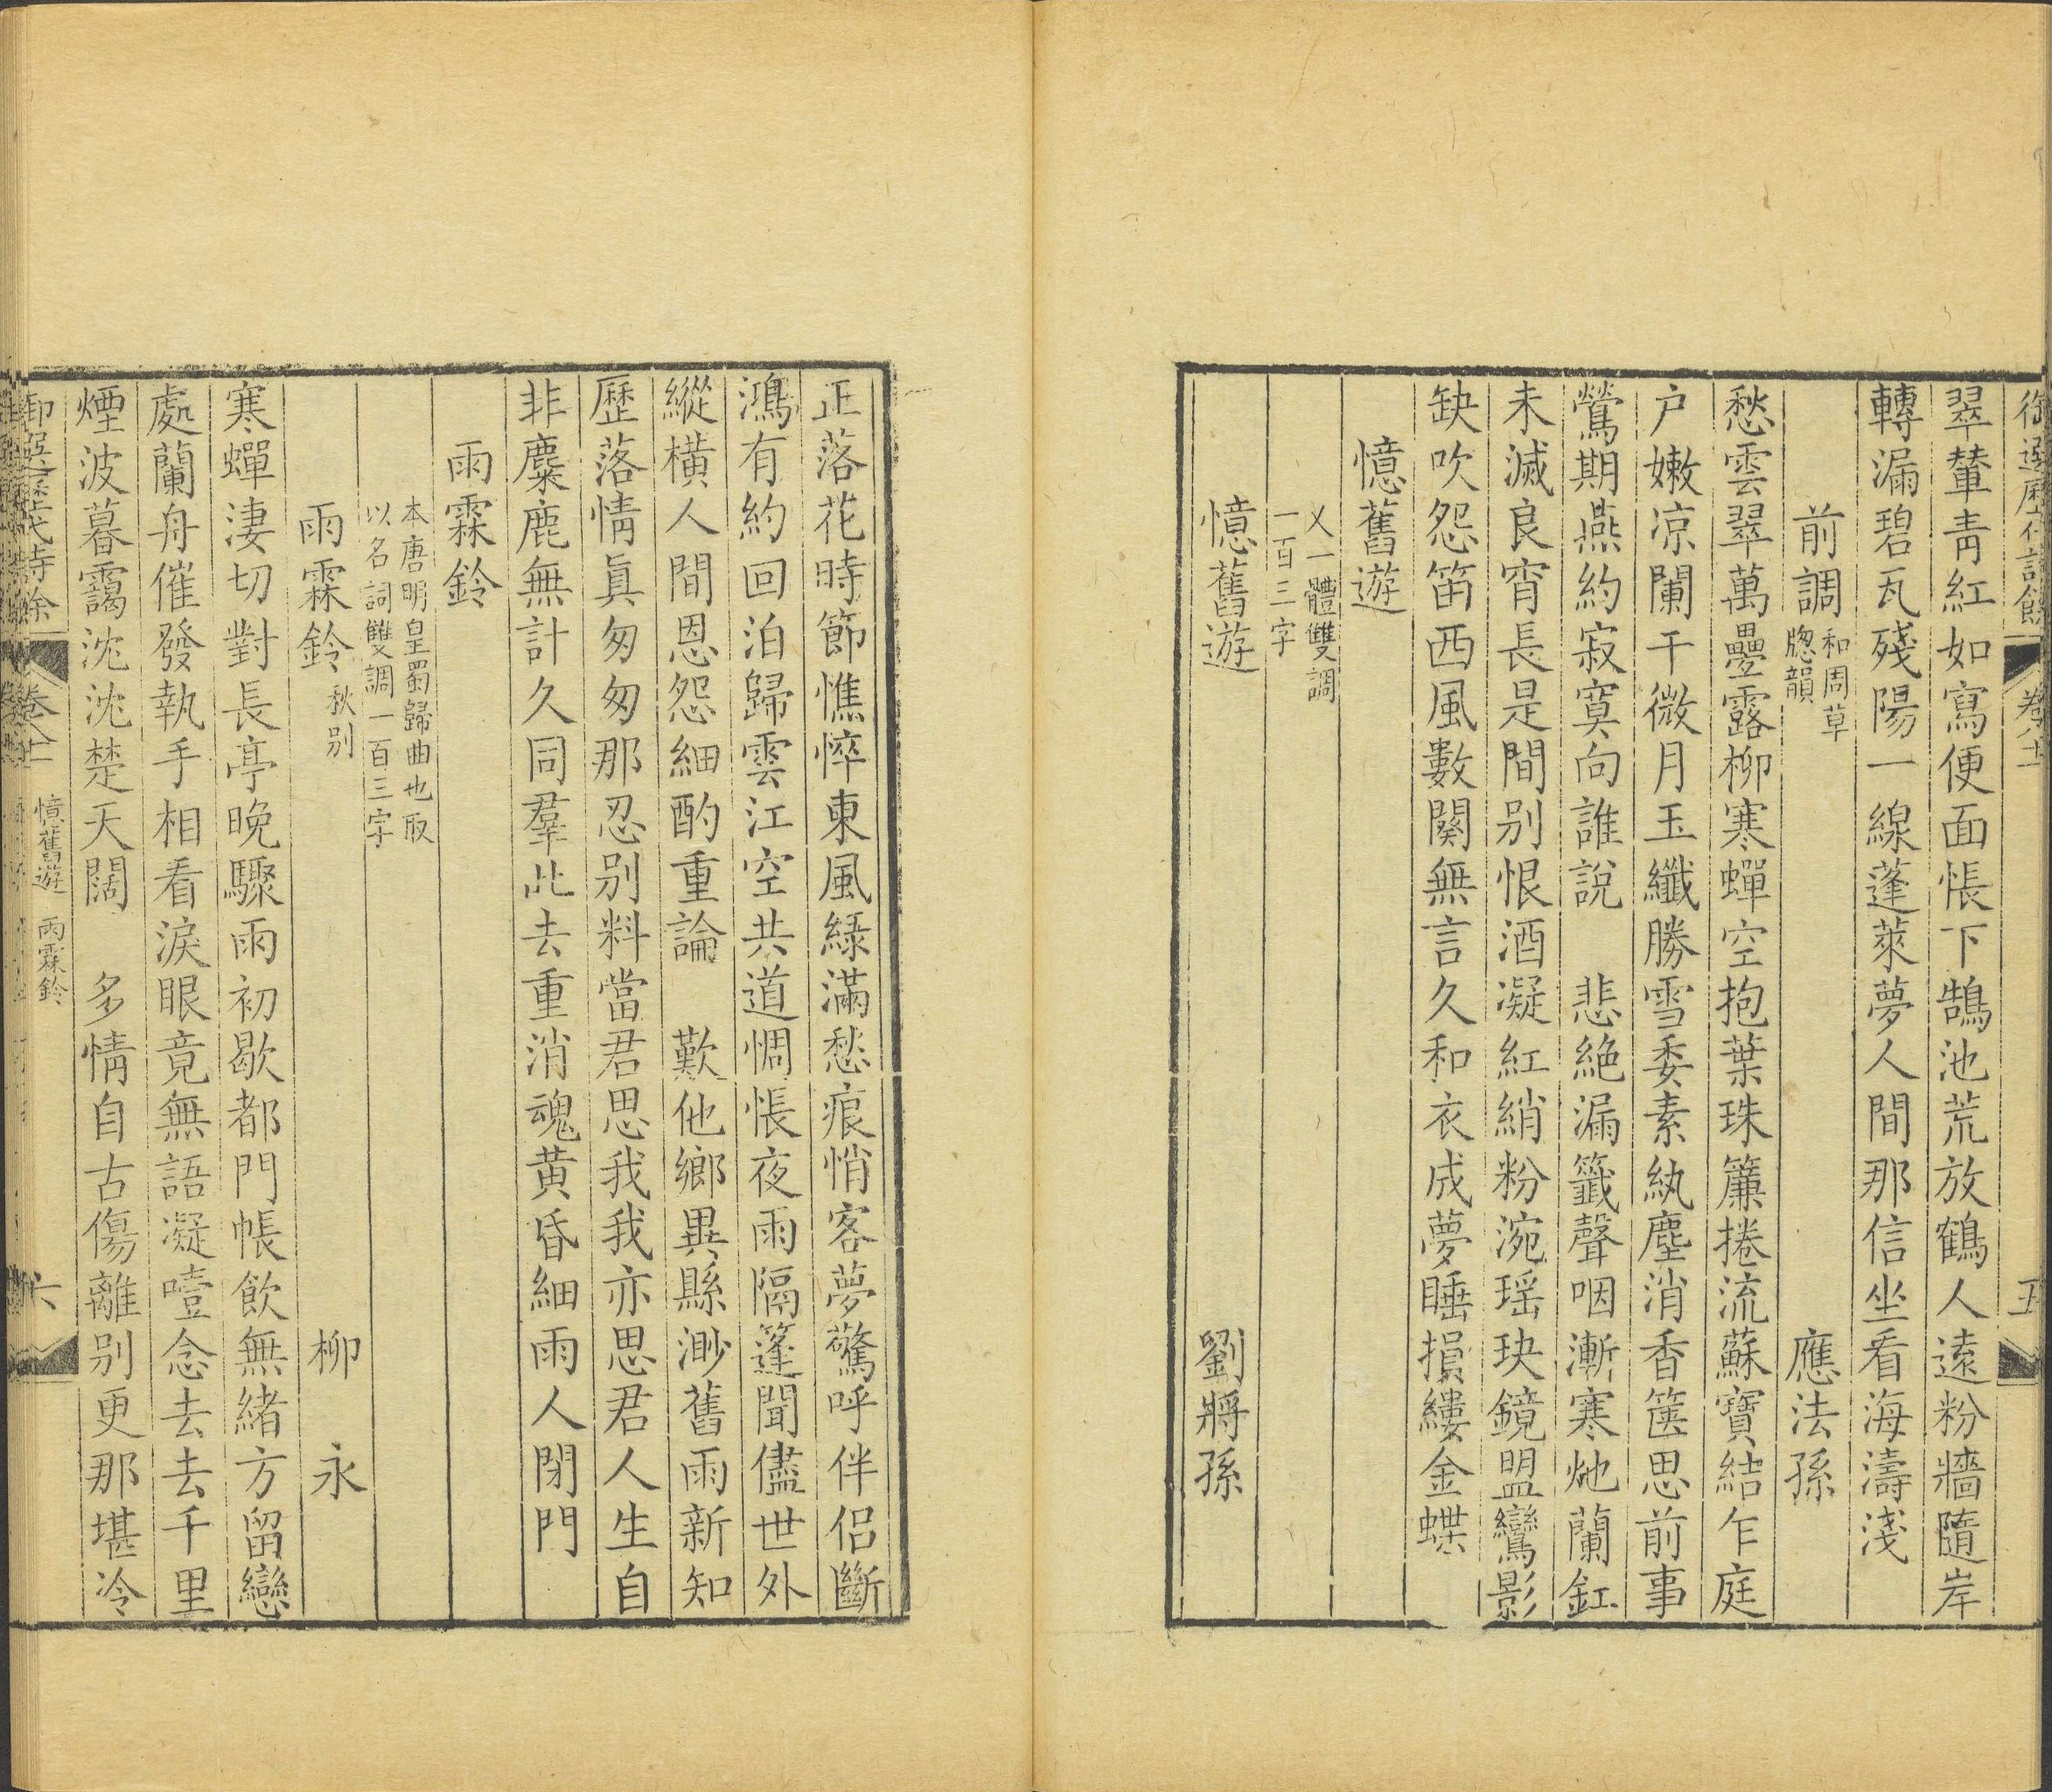 御選歷代詩餘 卷八十一 五
翠輦青紅如寫便面悵下鵠池荒放鶴人遠粉牆隨岸
轉漏碧瓦殘陽一線蓬萊夢人間那信坐看海濤淺
前調 和周草牕韻 應法孫
愁雲翠萬疊露柳寒蟬空抱葉珠簾捲流蘇寶結乍庭
户嫩凉闌干微月玉纖勝雪委素紈塵消香篋思前事
鶯期燕約寂寞向誰說 悲絶漏籤聲咽漸寒灺蘭釭
未滅良宵長是間别恨酒凝紅綃粉涴瑶玦鏡盟鸞影
缺吹怨笛西風數闋無言久和衣成夢睡損縷金蝶
憶舊遊
又一體雙調
一百三字
憶舊遊 劉將孫
正落花時節憔悴東風綠滿愁痕悄客夢驚呼伴侣斷
鴻有約回泊歸雲江空共道惆悵夜雨隔篷聞儘世外
縱橫人間恩怨細酌重論 歎他鄉異縣渺舊雨新知
歷落情眞匆匆那忍别料當君思我我亦思君人生自
非麋鹿無計久同羣此去重消魂黄昏細雨人閉門
雨霖鈴
本唐明皇蜀歸曲也取
以名詞雙調一百三字
雨霖鈴 秋别 柳永
寒蟬淒切對長亭晚驟雨初歇都門帳飲無緒方留戀
處蘭舟催發執手相看淚眼竟無語凝噎念去去千里
煙波暮靄沈沈楚天闊 多情自古傷離别更那堪冷
御選歷代詩餘 卷八十一 憶舊遊 雨霖鈴 六